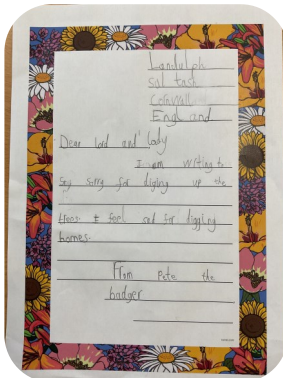 Landulph
Sal tash
Cornwall
Engl and
Dear lord and lady
I am writing to
say sorry for diging up the
I feel sad for diggling
homes.
From Pete the
badger